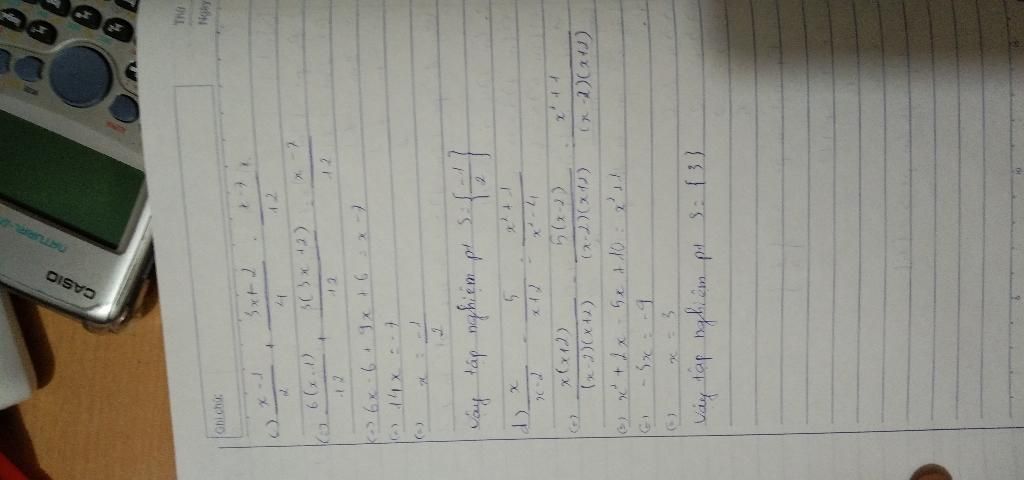 Thứ
Ngày
Ghi chú:
c) x-1/2 + 3x+2/4 = x-7/12
(=) 6(x-1)/12 + 3(3x+2)/12 = x-7/12
(=) 6x-6+9x+6 = x-7
(=) 14x = -7
(=) x = -1/2
Vậy tập nghiệm pt S={-1/2}
d) x/x-2 - 5/x+2 = x²+1/x²-4
(=) x(x+2)/(x-2)(x+2) - 5(x-2)/(x-2)(x+2) = x²+1/(x-2)(x+2)
(=) x²+2x-5x+10 = x²+1
(=) -3x = -9
(=) x = 3
Vậy tập nghiệm pt S={3}
CASIO
NATURAL-